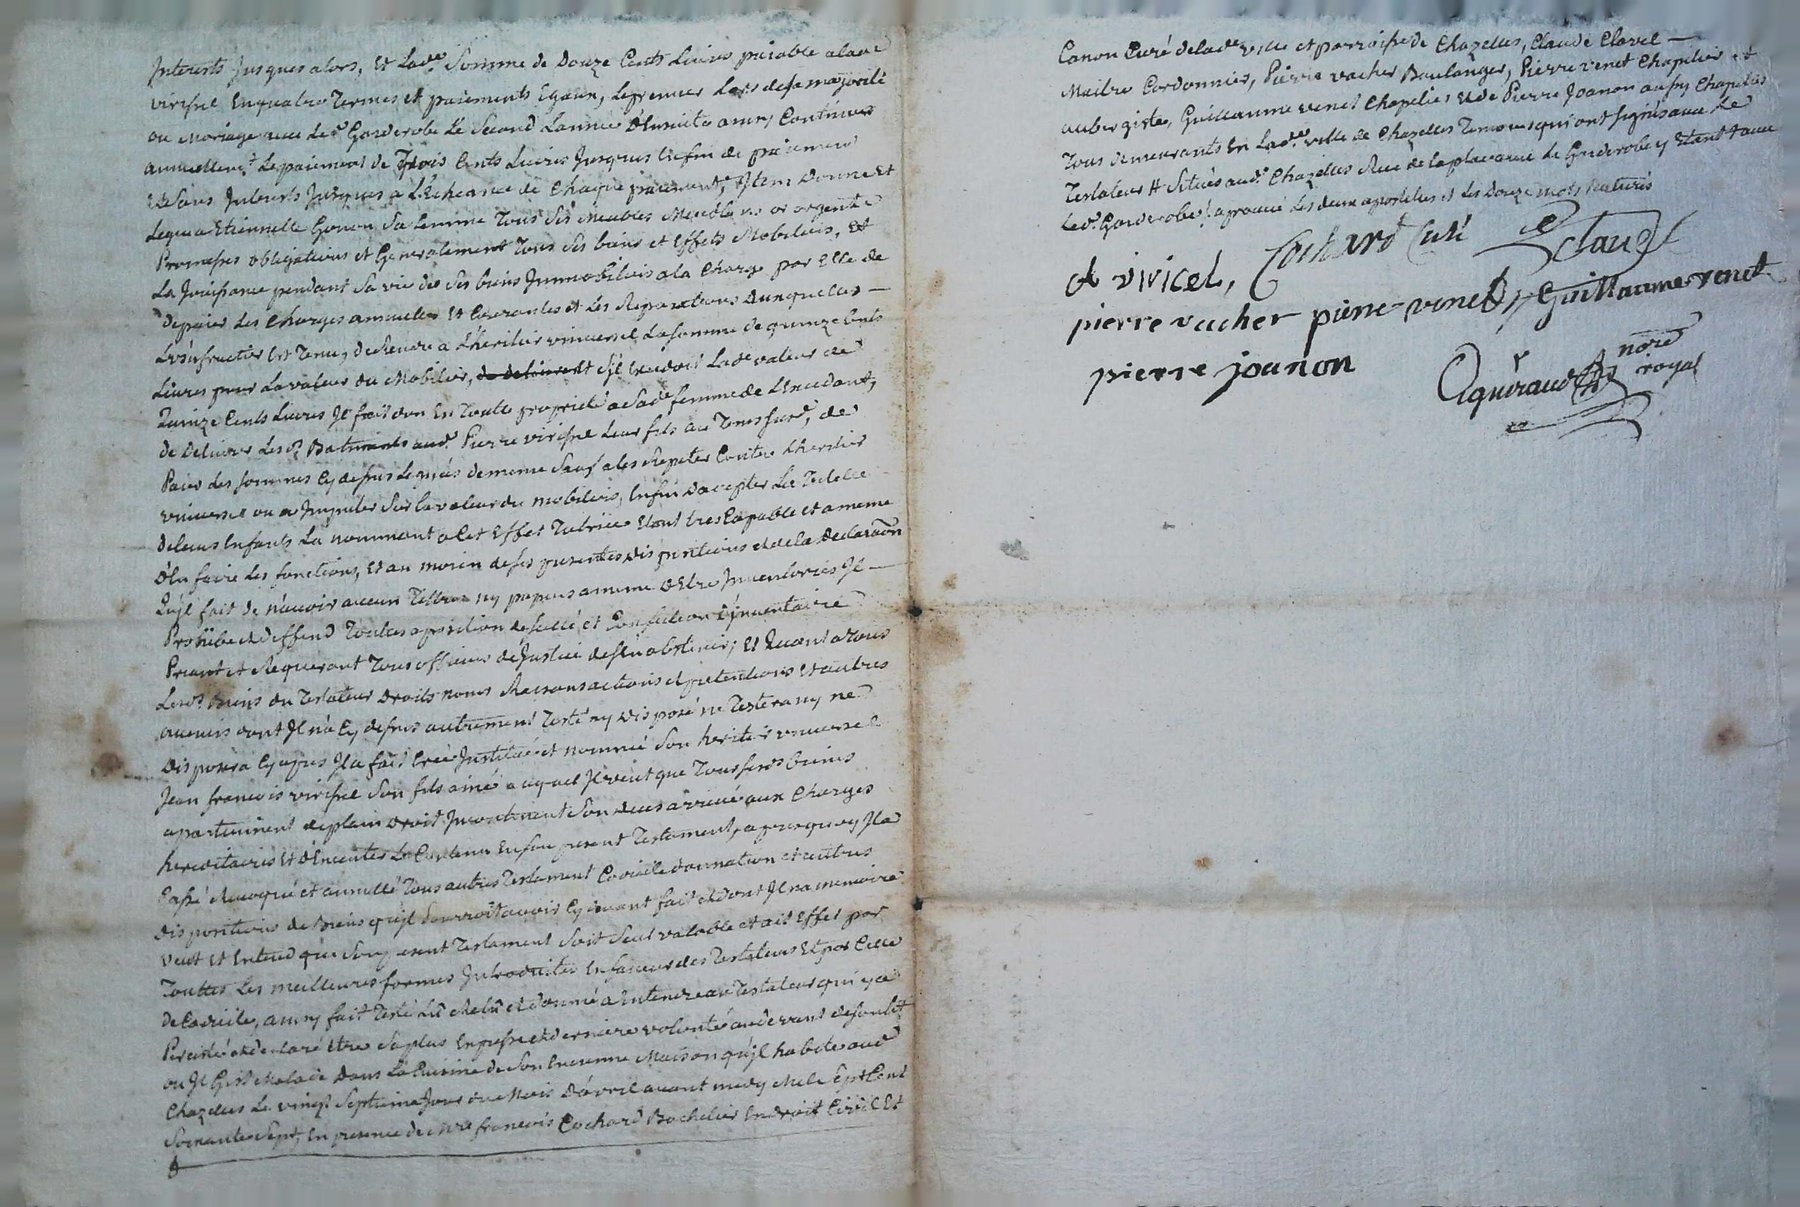 Interests Jusques alors, Et Lade Somme de Douze Cents Livres païable audt
viricel En quatre Termes et paiements Egaux, Le premier Lors de sa majorité
ou Mariage avec Led. Garderobe Le Second Lannée d'Ensuite ainsy Continuer
annuellemt Le paiement de Trois Cents Livres Jusques a fin de paiement
Et Sans Interests Jusques a L'Echeance de Chaque paiement, Item Donne Et
Legue a Etiennette Gonon Sa femme Tous Ses Meubles Meublans or argent
Promesses obligations et Generalement Tous Ses biens et Effets Mobiliers, Et
La Jouissance pendant Sa vie de Ses biens Immobiliers a la Charge par Elle de
de païer Les Charges annuelles Et Courantes et Les Reparations Auxquelles
L'usufructier Est Tenu, de Rendre a L'heritier universel La Somme de quinze Cents
Livres pour La valeur du Mobilier, S'il Excedoit Lade valeur de
Quinze Cents Livres Il fait don En Toute proprieté a Sade femme de L'Excedant,
de Delivrer Les Batiments audt Pierre viricel Leur fils au Tems fixé, de
Païer des sommes Cy dessus Leguées de meme Sauf a les Repeter Contre Lheritier
universel ou a Imputer Sur la valeur du mobilier, Enfin d'accepter La Tutelle
de Leurs Enfants La nommant a Cet Effet Tutrice Etant tres Capable et a meme
d'En faire Les fonctions, Et au moien de ses presentes dispositions et de la Declaration
Qu'il fait de n'avoir aucun Tittre ny papiers a meme d'Etre Inventoriés Il
Prohibe et deffend Toutes aposition de scellé et Confection d'inventaire
Priant et Requerant Tous officiers de Justice de s'En abstenir; Et Quant a Tous
Les Biens du Testateur Droits noms Raisons actions et pretentions Et autres
avenirs dont Il n'a Cy dessus autrement Testé ny disposé ne Testera ny ne
disposera Cy apres Il a fait Créé Institué et nommé Son heritier universel
Jean francois viricel Son fils ainé auquel Il veut que Tous ses biens
apartiennent de plein Droit Incontinent Son deces arrivé aux Charges
hereditaires Et d'Executer Le Contenu En son present Testament, apres quoy Il a
Cassé Revoqué et annullé Tous autres Testament Codicile donnation et autres
dispositions de Biens qu'il Pourroit avoir Cy devant fait et dont Il n'a memoire
veut et Entend que Son present Testament Soit Seul valable et ait Effet par
Touttes Les meilleures formes Introduites En faveur des Testateurs Et par Celle
de Codicile, ainsy fait Testé Lû Relû et donné a Entendre au Testateur qui y a
Persisté et declaré Etre Sa plus Expresse et derniere volonté
ou Il Gist Malade Dans La Cuisine de Son Ancienne Maison qu'il habite audt
Chazelles Le vingt Septieme Jour du Mois D'avril avant midy Mil Sept Cent
Soixante Sept, En presence de Mre francois Cochard Bachelier En droit Civil Et
Canon Curé de lade ville et parroisse de Chazelles, Claude Clavel
Maitre Cordonnier, Pierre vacher Boulanger, Pierre venet Chapelier et
aubergiste, Guillaume venet Chapelier et de Pierre Joanon aussy Chapelier
Tous demeurants En Lade ville de Chazelles Temoins qui ont signés avec Le
Testateur # Situés audt Chazelles Rue de la place avec Le Garderobe y Etant
Led. Garderobe. aprouvé Les deux apostilles et Les Douze mots Raturés
viricel, Cochard Curé Claude
pierre vacher pierre venet Guillaume venet
pierre joanon
notre
royal